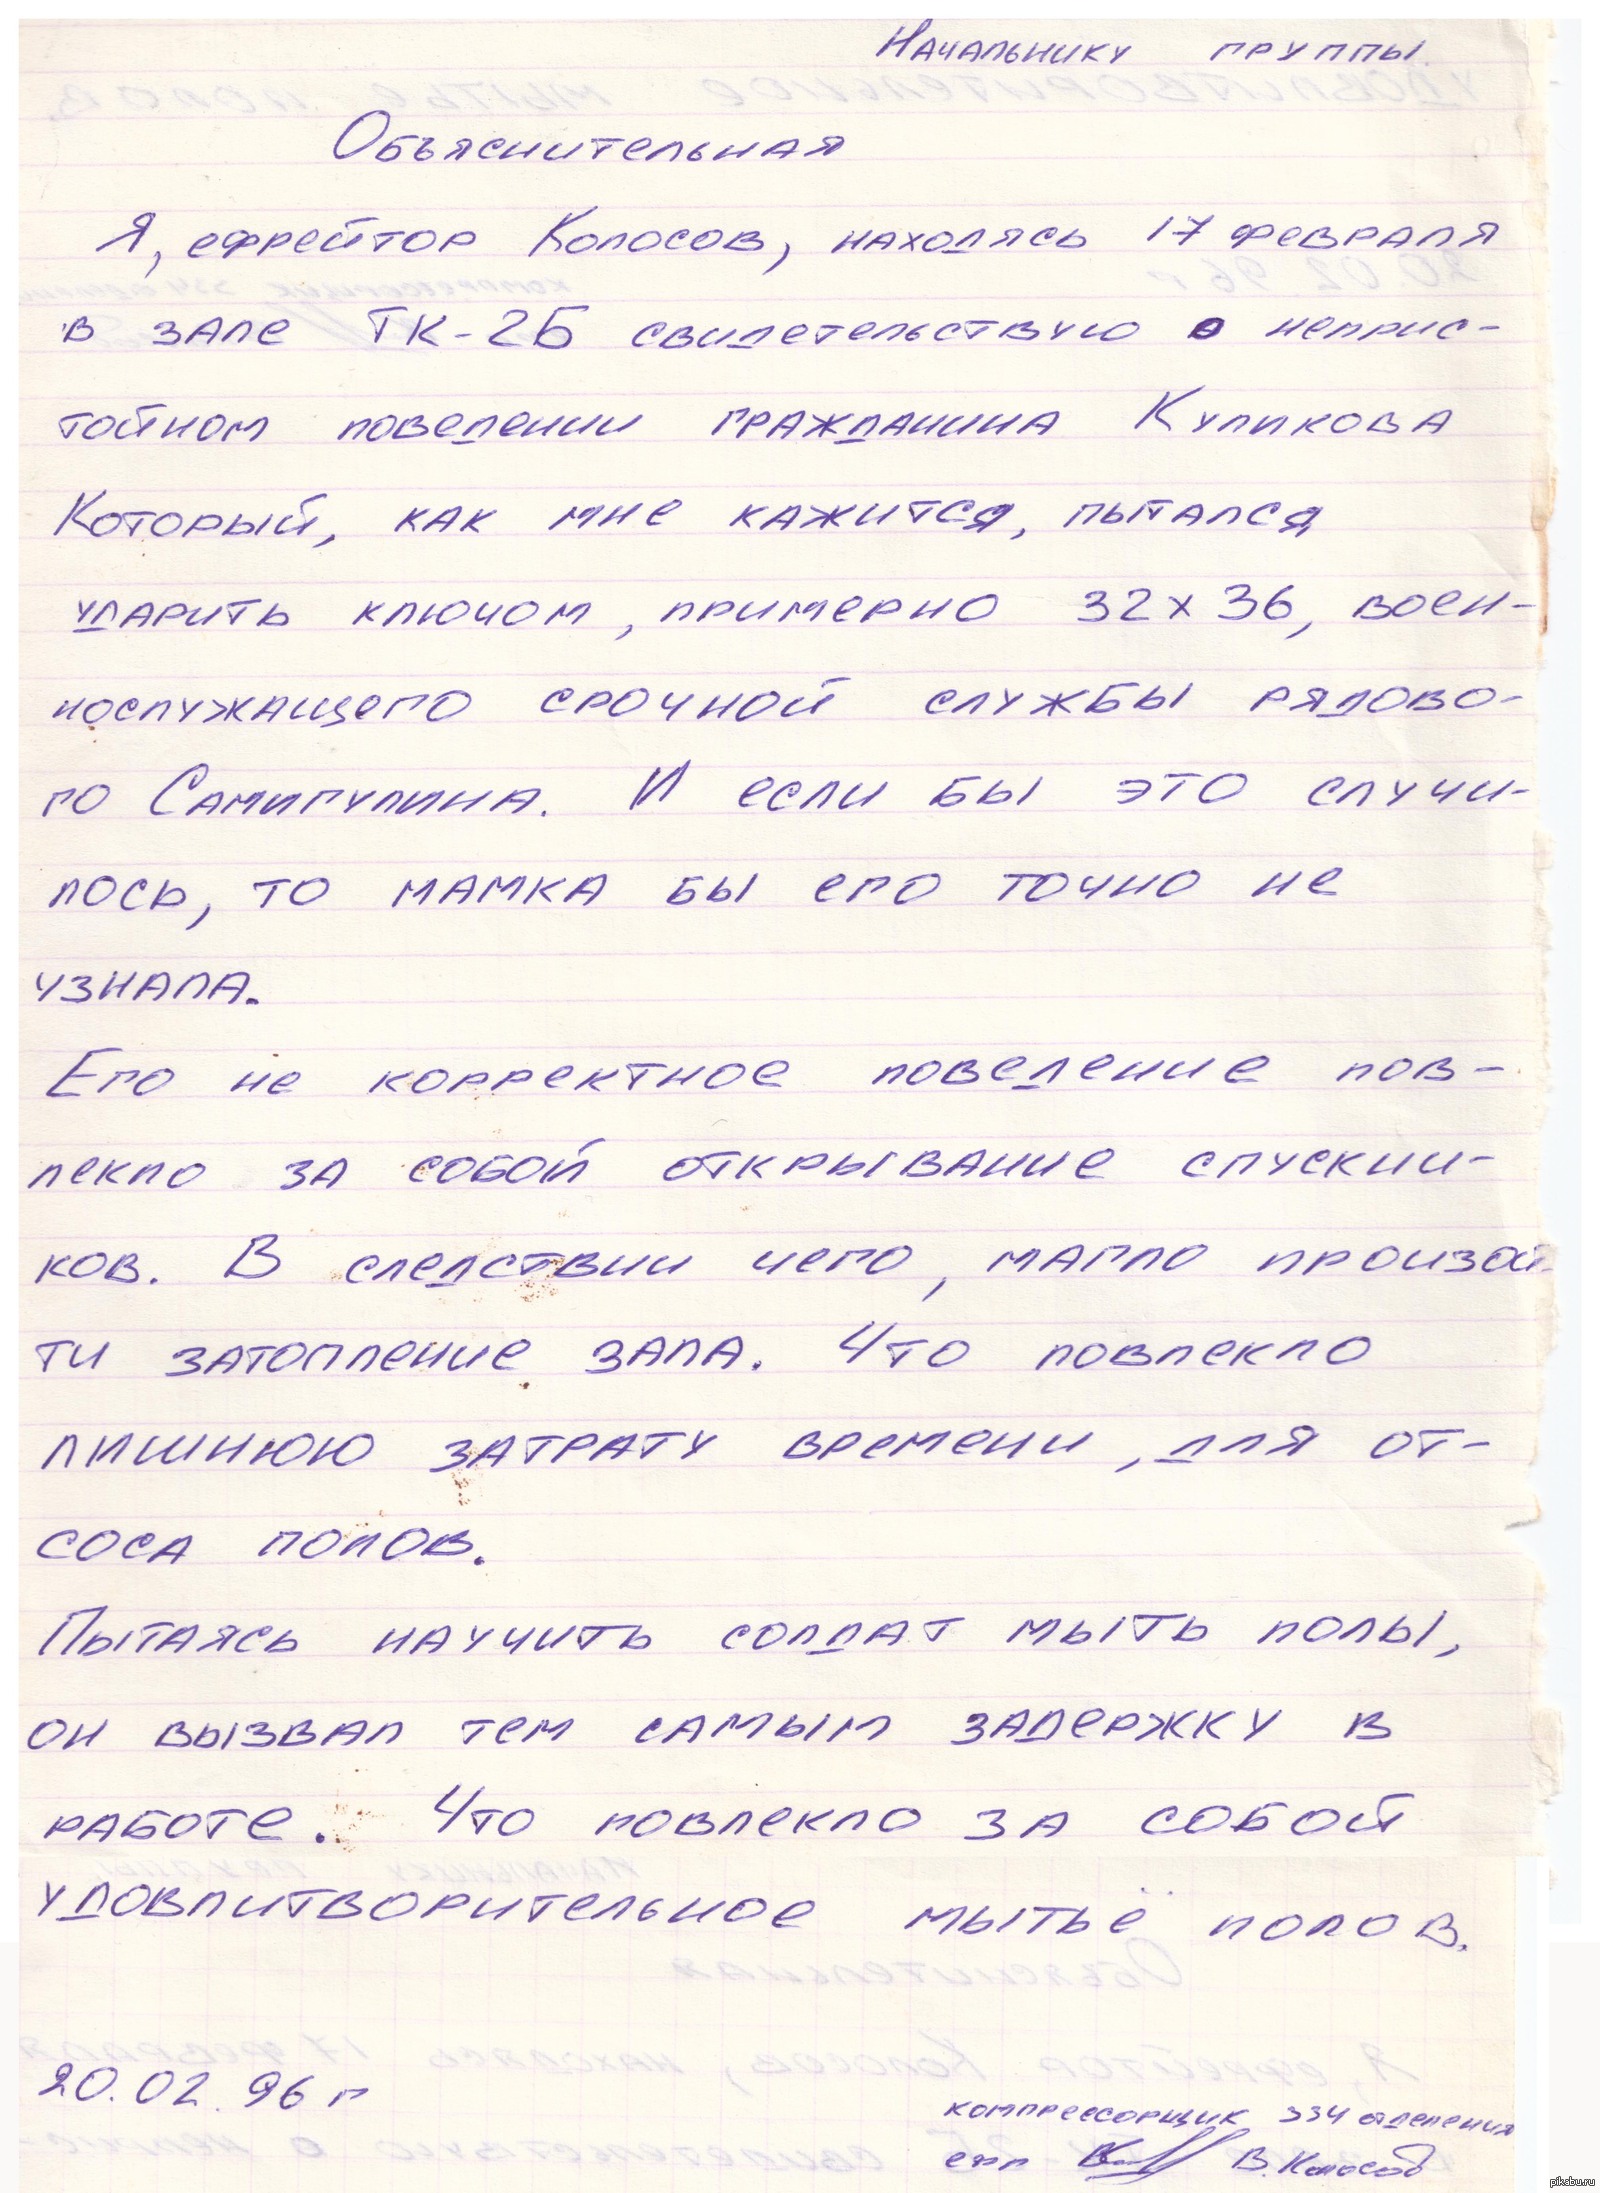 Начальнику группы.
Объяснительная
Я, ефрейтор Колосов, находясь 17 февраля
в зале ТК-2Б свидетельствую о неприс-
тойном поведении гражданина Куликова
Который, как мне кажится, пытался
ударить ключом, примерно 32х36, воен-
нослужащего срочной службы рядово-
го Самигулина. И если бы это случи-
лось, то мамка бы его точно не
узнала.
Его не корректное поведение пов-
лекло за собой открывание спускни-
ков. В следствии чего, магло произой-
ти затопление зала. Что повлекло
лишнюю затрату времени, для от-
соса полов.
Пытаясь научить солдат мыть полы,
он вызвал тем самым задержку в
работе. Что повлекло за собой
удовлитворительное мытьё полов.
20.02.96 г
компрессорщик 334 отделения
ефр В. Колосов
pikabu.ru